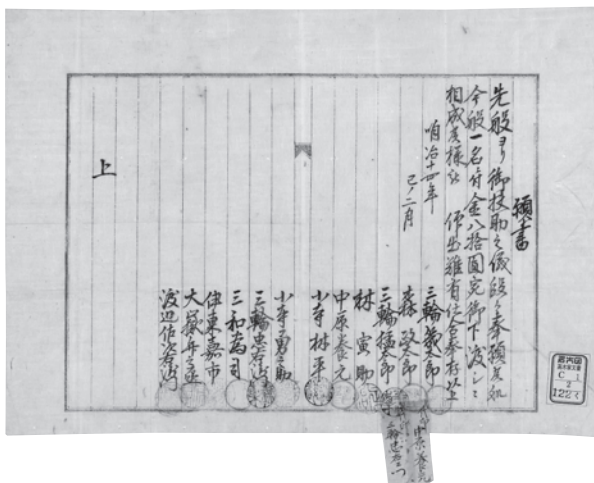 願書
先般ヨリ御扶助之儀段々奉願候処
今般一名付金八拾圓宛御下渡シニ
相成候様被 仰出難有仕合奉存候以上
明治十四年
巳ノ二月
三輪
森 政太郎
三輪 太郎
林 寅助
中原養元
小寺林平
小寺勇之助
三輪忠右衛門
三和為司
伊東嘉市
大嶽舟之進
渡辺佐次右衛門
上
中原養元
三輪忠右衛門
C 1
2
122